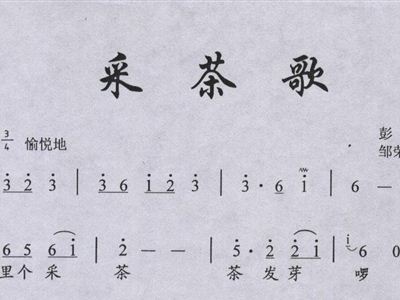 采茶歌
3/4 愉悦地 彭
邹荣
3 2 3 | 3 6 1 2 3 | 3 · 6 1 | 6 —
6 5 6 1 | 2 — — | 5 · 2 2 1 | 1 6 0
里个采 茶 茶发芽 啰